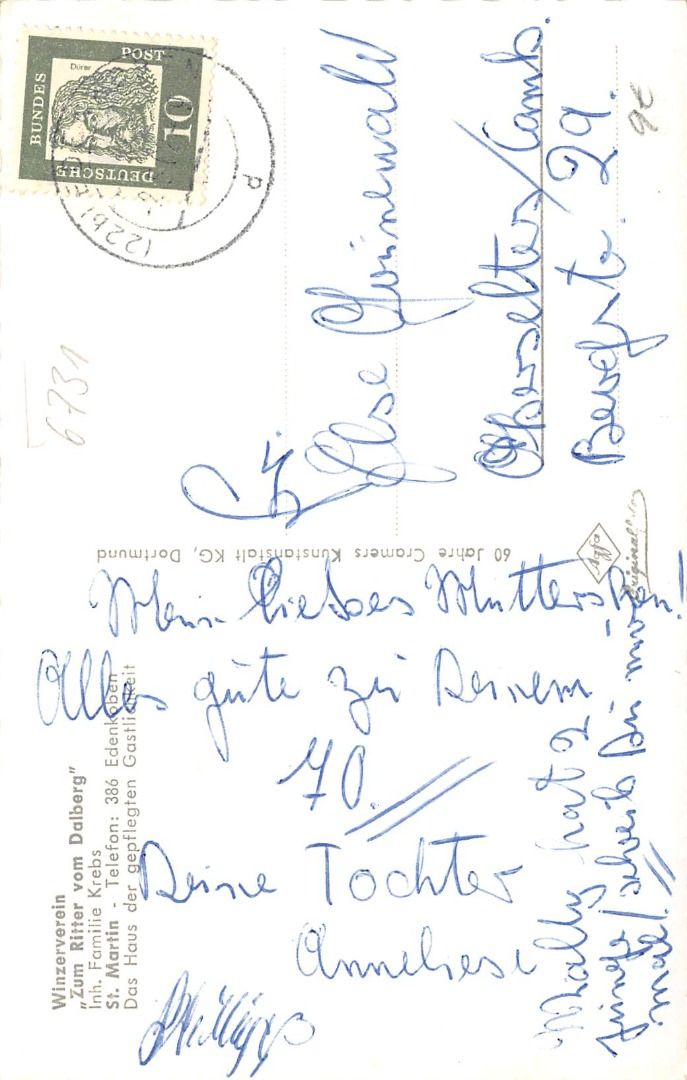 Winzerverein
„Zum Ritter vom Dalberg"
Inh. Familie Krebs
St. Martin - Telefon: 386 Edenkoben
Das Haus der gepflegten Gastlichkeit
Mein liebes Mütterchen!
Alles gute zu Deinem
70.
Deine Tochter
Anneliese
Phillipp
Wally hat 2
Junge / schreib Du mir
mal!
60 Jahre Cramers Kunstanstalt KG, Dortmund
Agfa
Original
DEUTSCHE
BUNDES
POST
Dürer
10
(22b)
p
Fr.
Else Grünewald
Oberselters/Camb.
Bergstr. 29.
6731
9€